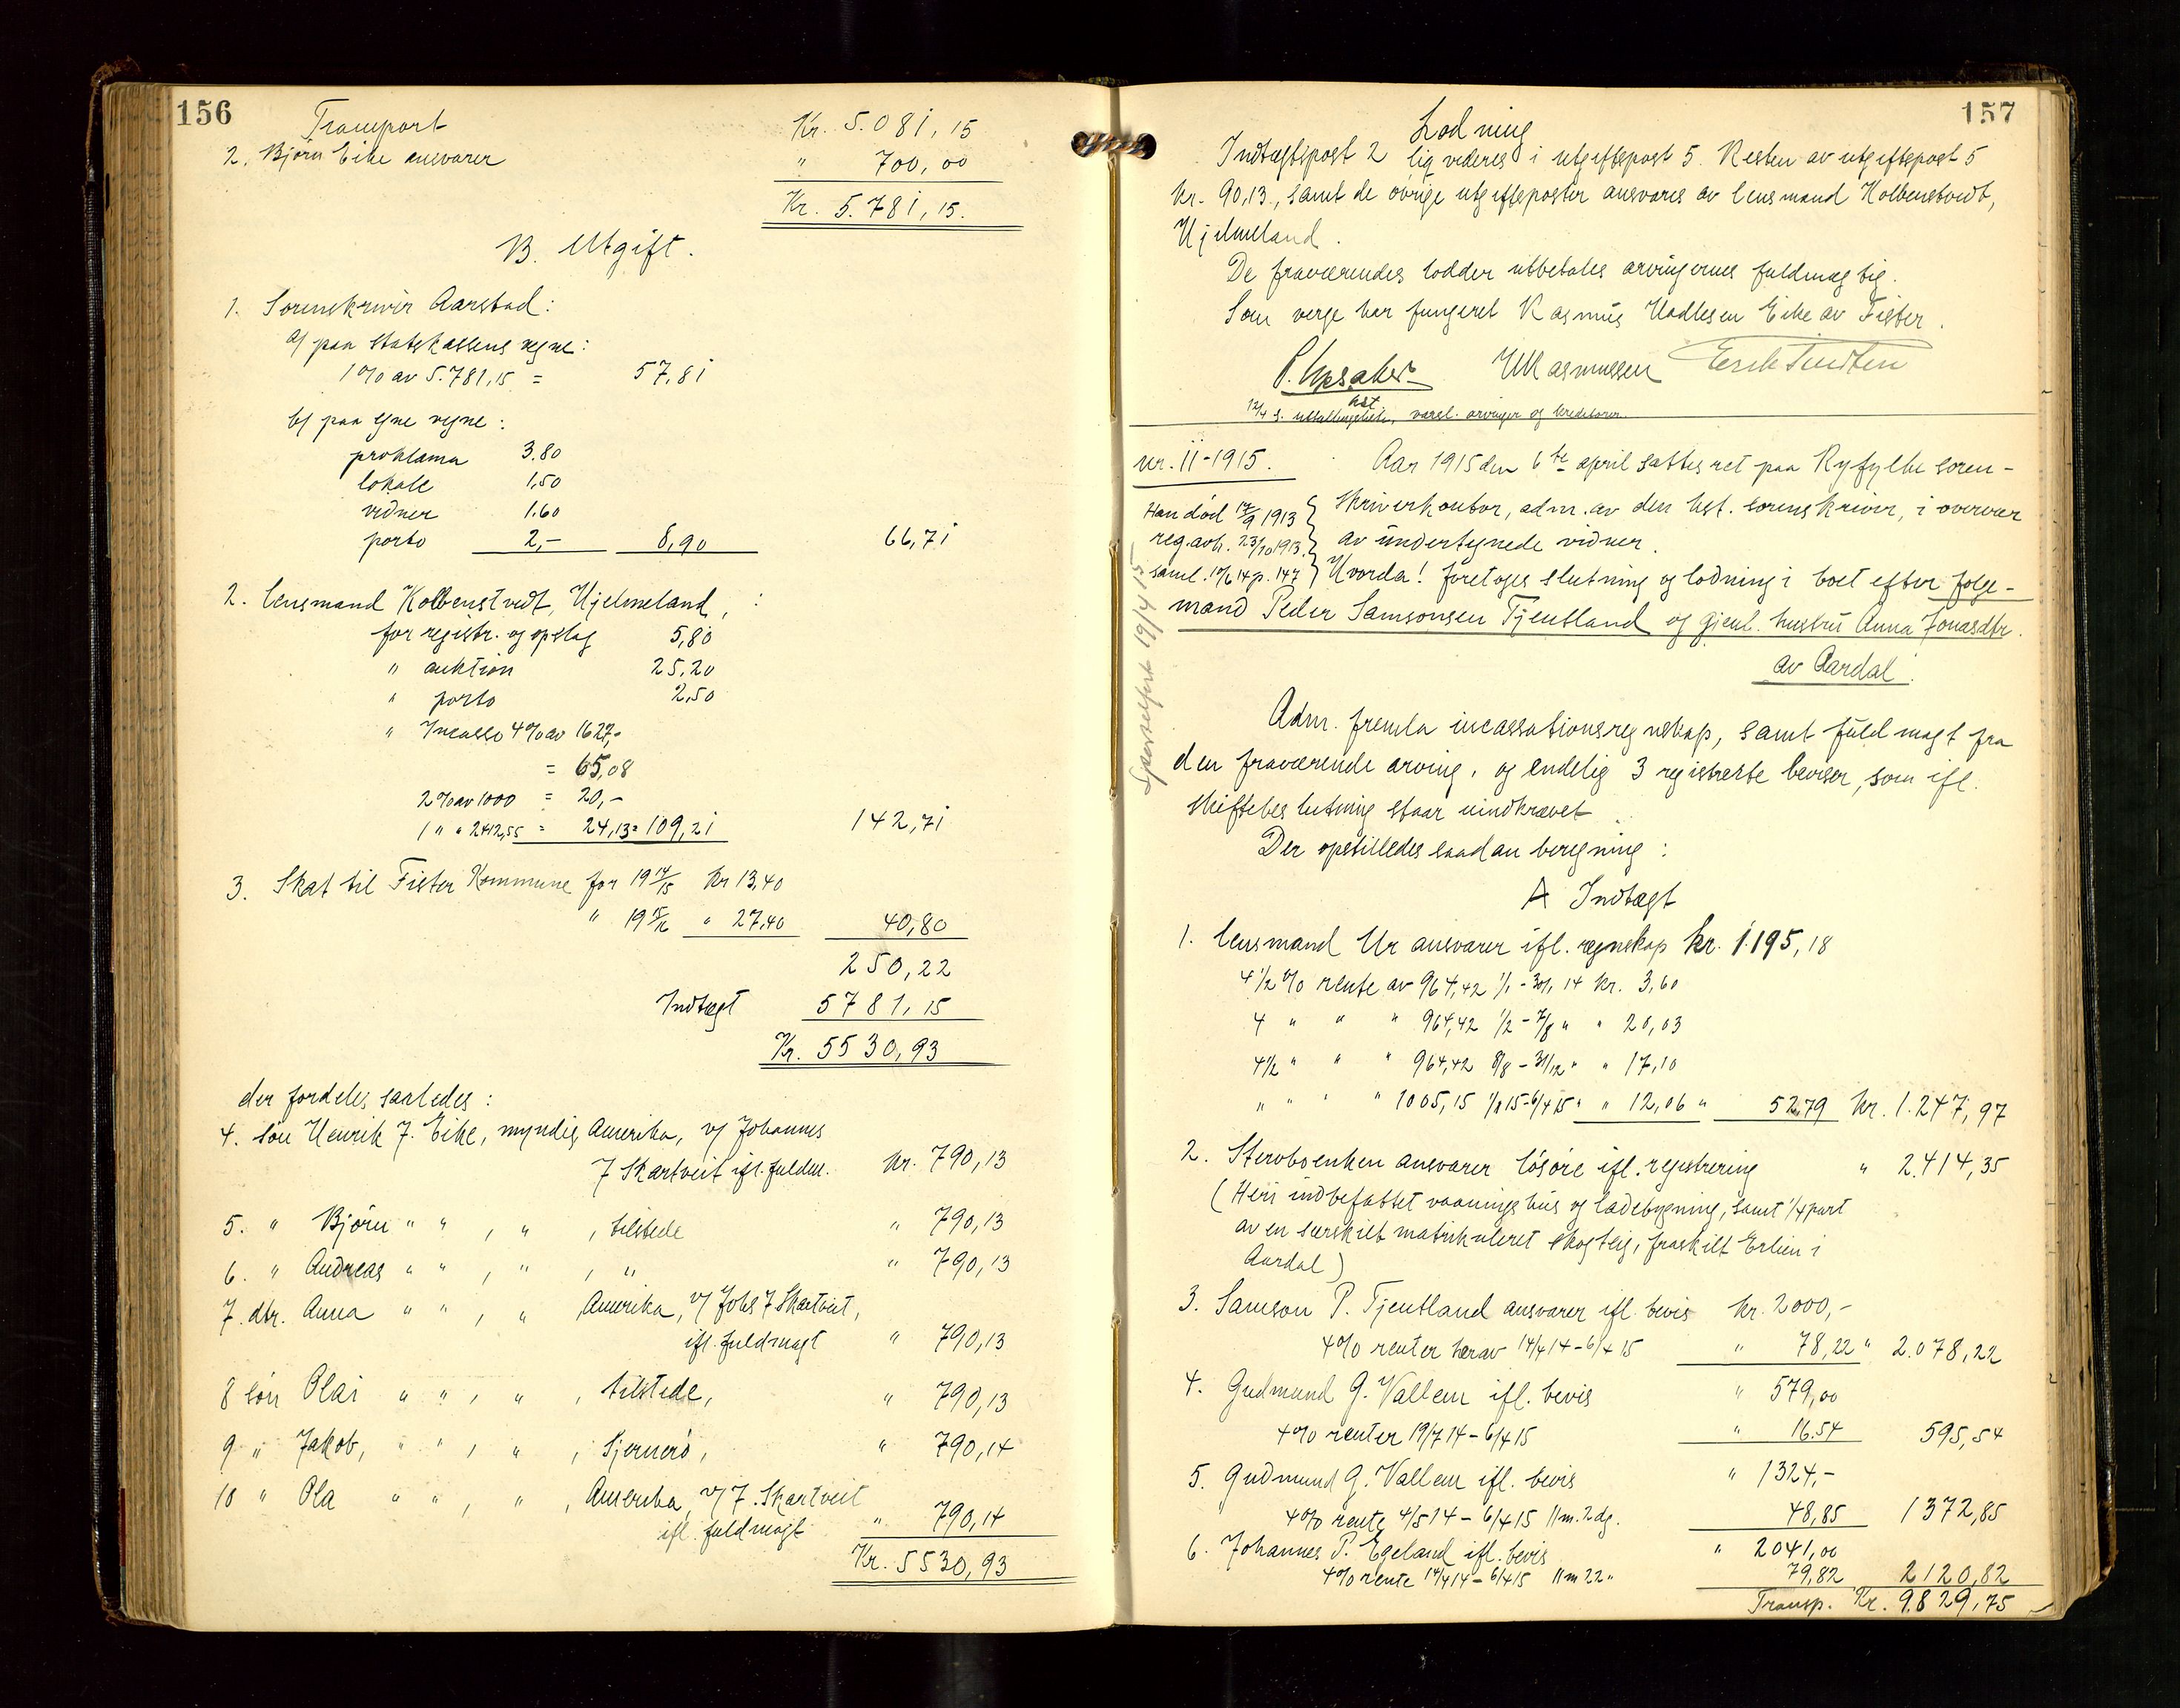 156
Transport Kr. 5.081,15
2. Björn Eike ansvarer " 700,00
Kr. 5.781,15.
B. Utgift.
1. Sorenskriver Aarstad:
a/ paa statskassens vegne:
1% av 5.781,15 = 57,81
b/ paa egne vegne:
proklama 3.80
lokale 1,50
vidner 1.60
porto 2,- 8,90 66,71
2. lensmand Kolbenstvedt, Hjelmeland, :
for registr. og opslag 5,80
" auktion 25,20
" porto 2,50
" Incasso 4% av 1627,-
= 65,08
2% av 1000 = 20,-
1 " " 2412,55 = 24,13 = 109,21 142,71
3. Skat til Fister Kommune for 19 14/15 Kr 13,40
" 19 15/16 " 27,40 40,80
250,22
Indtægt 5781,15
Kr. 5530,93
der fordeles saaledes:
4. sön Henrik J. Eike, myndig, Amerika, v/ Johannes
J Skartveit ifl. fuldm. Kr. 790,13
5. " Björn " " , " , tilstede " 790,13
6. " Andreas " " , " , " " 790,13
7. dtr. Anna " " , " Amerika, v/ Johs J Skartveit,
ifl. fuldmagt " 790,13
8 sön Olai " " , " , tilstede, " 790,13
9 " Jakob, " " , " , Sjernerö, " 790,14
10 " Ola " " , " , Amerika, v/ J. Skartveit
ifl. fuldmagt " 790,14
Kr. 5530,93
157
Lodning
Indtægtspost 2 likvideres i utgiftspost 5. Resten av utgiftspost 5
kr. 90,13, samt de övrige utgiftsposter ansvares av lensmand Kolbenstvedt,
Hjelmeland.
De fraværendes lodder utbetales arvingernes fuldmægtig.
Som verge har fungeret Rasmus Hadlesen Eike av Fister.
P. Upsaker M Rasmussen Erik
kst.
12/4 s. utbetalingsliste, varsl. arvinger og kreditorer.
nr. 11-1915. Aar 1915 den 6te april sattes ret paa Ryfylke soren-
Han död 17/9 1913 skriverkontor, adm. av den kst. sorenskriver, i overvær
reg. avh. 23/10 1913. av undertegnede vidner.
saml. 17/6 14 p. 147 Hvorda! foretoges slutning og lodning i boet efter følge-
mand Peder Samsonsen Tjentland og gjenl. hustru Anna Jonasdtr.
av Aardal.
19/4 15
Adm. fremla incassationsregnskap, samt fuldmagt fra
den fraværende arving, og endelig 3 registrerte beviser, som ifl.
skiftebeslutning staar uindkrævet.
Der opstilledes saadan beregning:
A Indtægt
1. lensmand Ur ansvarer ifl. regnskap kr. 1.195,18
4 1/2 % rente av 964,42 1/1 - 30/1 14 kr. 3,60
4 " " " 964,42 1/2 - 7/8 " " 20,03
4 1/2 " " " 964,42 8/8 - 31/12 " " 17,10
" " " " 1005,15 1/1 15 - 6/4 15 " " 12,06 " 52,79 Kr. 1.247,97
2. Stervboenken ansvarer lösöre ifl. registrering " 2.414,35
(Heri indbefattet vaaningshus og ladebygning, samt 1/4 part
av en særskilt matrikuleret skogteig, fraskilt Erlien i
Aardal)
3. Samson P. Tjentland ansvarer ifl. bevis kr. 2000,-
4% renter herav 14/4 14 - 6/4 15 " 78,22 " 2.078,22
4. Gudmund G. Vallem ifl. bevis " 579,00
4% renter 19/7 14 - 6/4 15 " 16.54 595,54
5. Gudmund G. Vallem ifl. bevis " 1324,-
4% rente 4/5 14 - 6/4 15 11 m. 2 dg. 48,85 1372,85
6. Johannes P. Egeland ifl. bevis " 2041,00
4% rente 14/4 14 - 6/4 15 11 m 22 " 79,82 2120,82
Transp. Kr. 9829,75